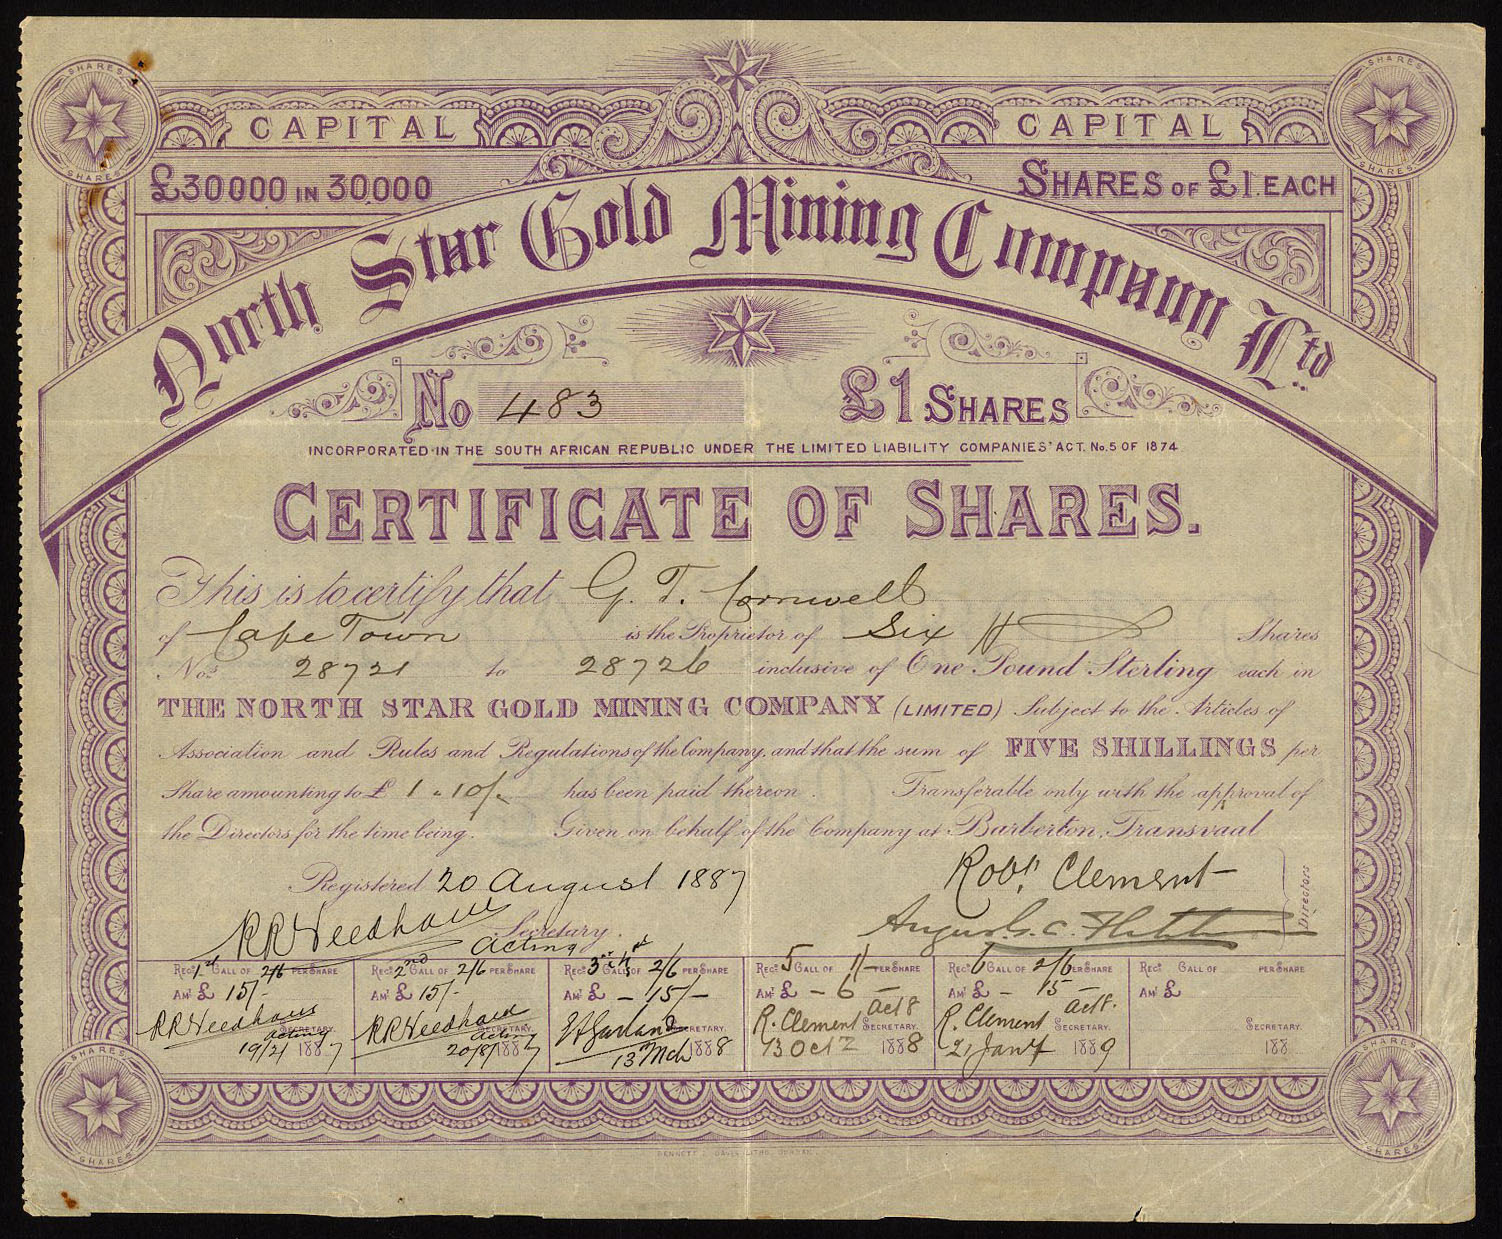 SHARES
SHARES
CAPITAL
CAPITAL
SHARES
SHARES
£30000 IN 30.000
SHARES OF £1. EACH
North Star Gold Mining Company Ltd
No 483
£1 SHARES
INCORPORATED IN THE SOUTH AFRICAN REPUBLIC UNDER THE LIMITED LIABILITY COMPANIES' ACT. No. 5 OF 1874
CERTIFICATE OF SHARES.
This is to certify that G. T. Cornwell
of Cape Town is the Proprietor of Six Shares
Nos 28721 to 28726 inclusive of One Pound Sterling each in
THE NORTH STAR GOLD MINING COMPANY (LIMITED) Subject to the Articles of
Association and Rules and Regulations of the Company, and that the sum of FIVE SHILLINGS per
Share amounting to £ 1.10/- has been paid thereon. Transferable only with the approval of
the Directors for the time being. Given on behalf of the Company at Barberton, Transvaal
Registered 20 August 1887
Robt. Clement
Directors
RR Needham Secretary.
acting
Angus G. C.
Recd 1st CALL OF 2/6 PER SHARE
AMT £ 15/-
RR Needham SECRETARY.
acting
19/21 1887
Recd 2nd CALL OF 2/6 PER SHARE
AMT £ 15/-
RR Needham SECRETARY.
acting
20/8/1887
Recd 3rd & 4th CALL OF 2/6 PER SHARE
AMT £ - 15/-
Garland SECRETARY.
13th Mch 1888
Recd 5 CALL OF 1/- PER SHARE
AMT £ - 6 -
R. Clement Actg SECRETARY.
13 Oct 1888
Recd 6 CALL OF 2/6 PER SHARE
AMT £ - 15 -
R. Clement Actg. SECRETARY.
21 Jany 1889
Recd CALL OF PER SHARE
AMT £
SECRETARY.
188
SHARES
SHARES
SHARES
SHARES
BENNETT & DAVIS LITHO. DURBAN.